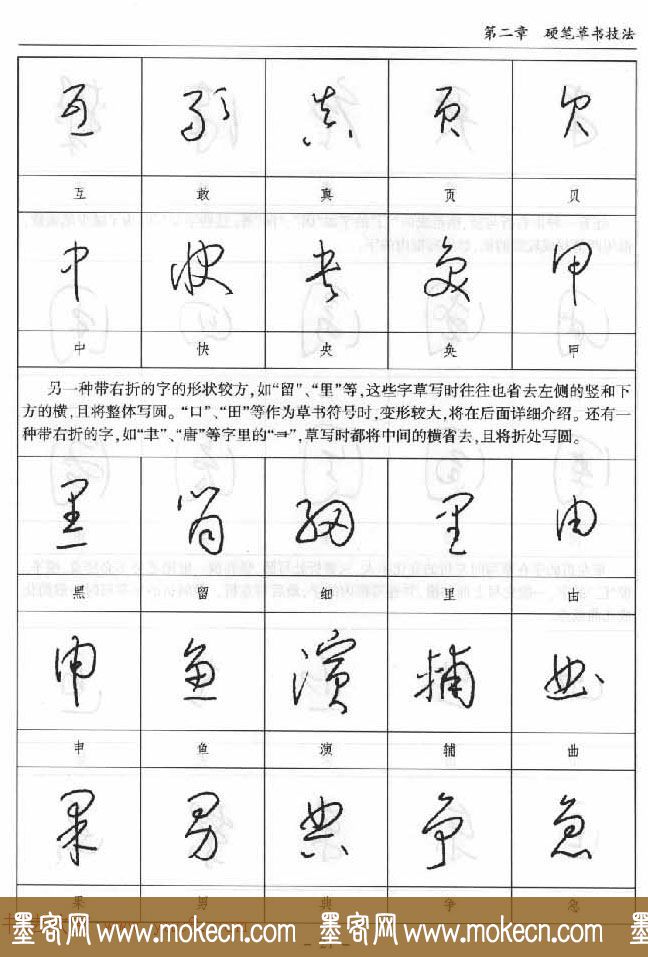 第二章 硬笔草书技法
互 敢 真 页 欠
互 敢 真 页 贝
中 快 央 奂 甲
中 快 央 奂 甲
另一种带右折的字的形状较方，如“留”、“里”等，这些字草写时往往也省去左侧的竖和下
方的横，且将整体写圆。“口”、“田”等作为草书符号时，变形较大，将在后面详细介绍。还有一
种带右折的字，如“聿”、“唐”等字里的“⇒”，草写时都将中间的横省去，且将折处写圆。
黑 留 细 里 由
黑 留 细 里 由
申 鱼 演 辅 曲
申 鱼 演 辅 曲
果 男 典 争 急
果 男 典 争 急
墨客网 www.mokecn.com 墨客网 www.mokecn.com